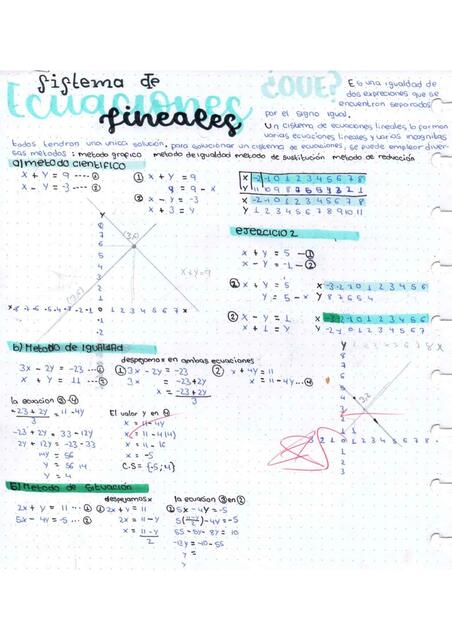 Sistema de
Ecuaciones
lineales
¿QUE?
Es una igualdad de
dos expreciones que se
encuentran separados
por el signo igual.
Un cistema de ecuaciones lineales, lo forman
varias ecuaciones lineales y varias incognitas
todos tendran una unica solución, para solucionar un cistema de ecuaciones, se puede emplear diver-
sas metodos: metodo grafico metodo de igualdad metodo de sustitución metodo de reducción
a) metodo cientifico
x + y = 9 ---- ①
x - y = -3 ---- ②
① x + y = 9
y = 9 - x
② x - y = -3
x + 3 = y
x -2 -1 0 1 2 3 4 5 6 7 8
y 11 10 9 8 7 6 5 4 3 2 1
x -2 -1 0 1 2 3 4 5 6 7 8
y 1 2 3 4 5 6 7 8 9 10 11
x+y=9
EJERCICIO 2
x + y = 5 —①
x - y = -1 —②
① x + y = 5
y = 5 - x
x -3 -2 -1 0 1 2 3 4 5 6
y 8 7 6 5 4
② x - y = 1
x + 1 = y
b) Metodo de Igualdad
despejamos x en ambas ecuaciones
3x - 2y = -23 ---①
x + y = 11 ---②
① 3x - 2y = -23
3x = -23+2y
x = -23+2y
3
② x + 4y = 11
x = 11-4y ----④
la ecuación ③-④
-23+2y = 11-4y
3
-23 + 2y = 33-12y
2y + 12y = -23-33
14y = 56
y = 56 14
y = 4
El valor y en ④
x = 11-4y
x = 11-4(4)
x = 11-16
x = -5
C.S = {-5;4}
b) Metodo de Situación
despejamos x
la ecuacion ③ en ②
2x + y = 11 ---①
5x - 4y = -5 ---②
① 2x + y = 11
2x = 11-y
x = 11-y
2
② 5x - 4y = -5
5(11-y/2)-4y=-5
55 - 5y - 8y = 10
-13y = -10-55
y =